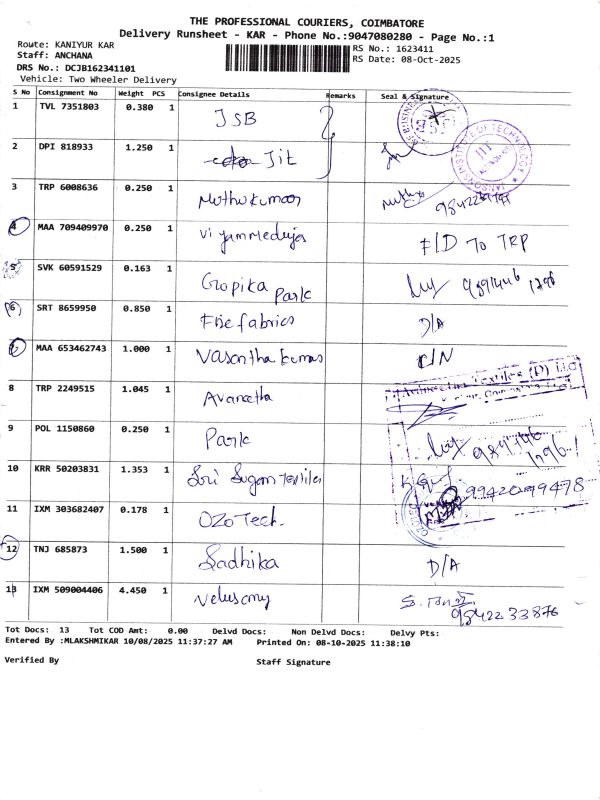 THE PROFESSIONAL COURIERS, COIMBATORE
Delivery Runsheet - KAR - Phone No.:9047080280 - Page No.:1
Route: KANIYUR KAR
RS No.: 1623411
Staff: ANCHANA
RS Date: 08-Oct-2025
DRS No.: DCJB162341101
Vehicle: Two Wheeler Delivery
S No Consignment No Weight PCS Consignee Details Remarks Seal & Signature
1 TVL 7351803 0.380 1 JSB
2 DPI 818933 1.250 1 Jit
3 TRP 6008636 0.250 1 Muthukumar
4 MAA 709409970 0.250 1 F/D To TRP
5 SVK 60591529 0.163 1 Gropika Park
6 SRT 8659950 0.850 1 Fire fabrics D/A
7 MAA 653462743 1.000 1 Vasantha kumar C/N
8 TRP 2249515 1.045 1 Avaneetha
9 POL 1150860 0.250 1 Park
10 KRR 50203831 1.353 1 Sri Sugan Textiles 9942079478
11 IXM 303682407 0.178 1 OZO Tech.
12 TNJ 685873 1.500 1 Sadhika D/A
13 IXM 509004406 4.450 1 Velusamy 9842233876
Tot Docs: 13 Tot COD Amt: 0.00 Delvd Docs: Non Delvd Docs: Delvy Pts:
Entered By :MLAKSHMIKAR 10/08/2025 11:37:27 AM Printed On: 08-10-2025 11:38:10
Verified By Staff Signature